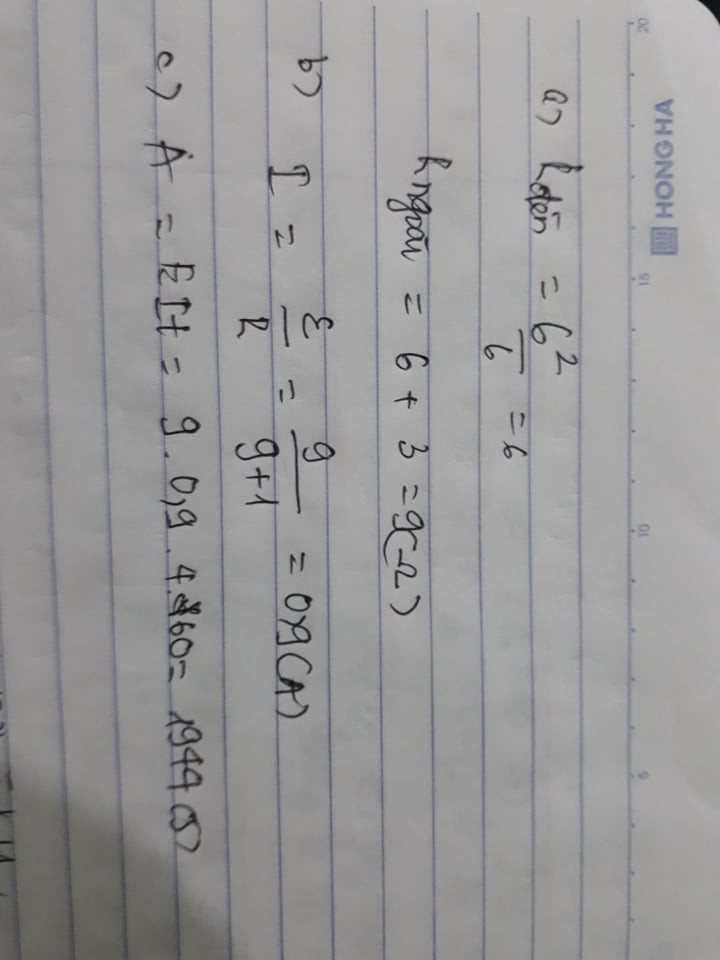 20 15 10 5
HONG HA
a) Rđèn = 6²/6 = 6
Rngoài = 6 + 3 = 9(Ω)
b) I = ℰ/R = 9/9+1 = 0,9(A)
c) A = EIt = 9.0,9.4.60 = 1944(J)